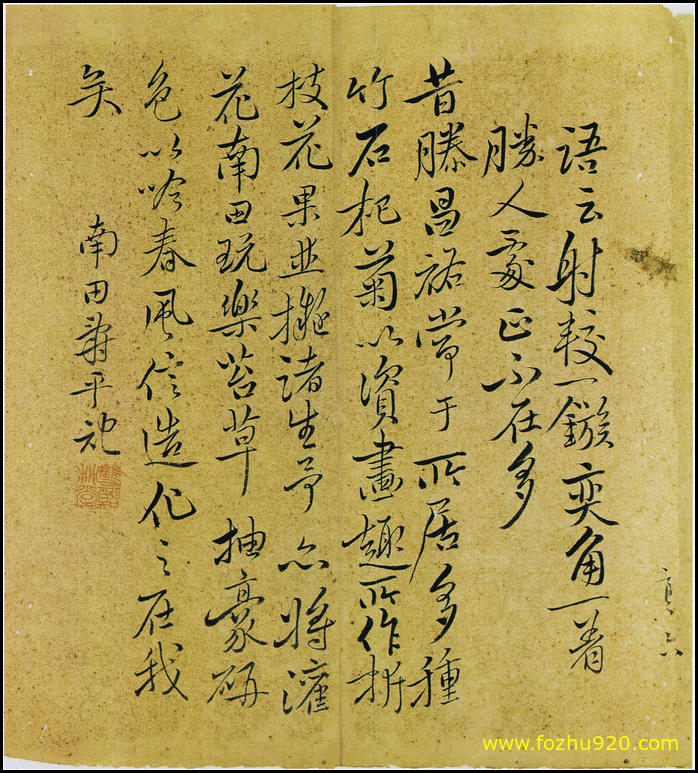 語云射較一鏃奕角一着
勝人處正不在多
昔滕昌祐常于所居多種
竹石杞菊以資畫趣所作折
枝花果並擬諸生予亦將灌
花南田玩樂苔草抽豪研
色以吟春風信造化之在我
矣
南田壽平記
www.fozhu920.com